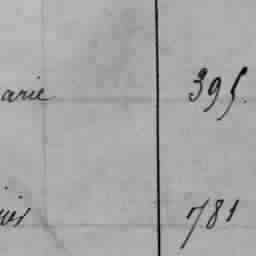 arie 395.
781